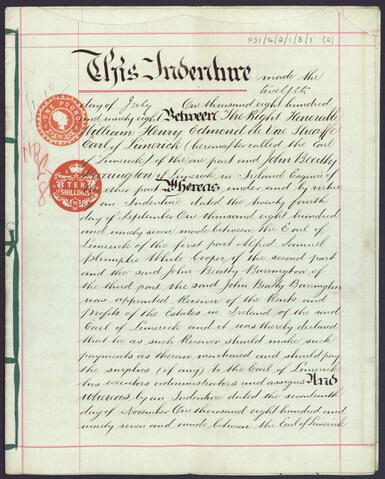 P51/6/2/1/3/1 (2)
This Indenture made the
twelfth
day of July One thousand eight hundred
and ninety eight Between The Right Honorable
William Henry Edmond de Vere Sheaffe
Earl of Limerick (hereinafter called the Earl
of Limerick) of the one part and John Beatty
Barrington of Limerick in Ireland Esquire of
the other part Whereas under and by virtue
of an Indenture dated the twenty fourth
day of September One thousand eight hundred
and ninety seven made between the Earl of
Limerick of the first part Alfred Samuel
Plumptre White Cooper of the second part
and the said John Beatty Barrington of
the third part the said John Beatty Barrington
was appointed Receiver of the Rents and
Profits of the Estates in Ireland of the said
Earl of Limerick and it was thereby declared
that he as such Receiver should make such
payments as therein mentioned and should pay
the surplus (if any) to the Earl of Limerick
his executors administrators and assigns And
whereas by an Indenture dated the seventeenth
day of November One thousand eight hundred and
ninety seven and made between the Earl of Limerick
ONE POUND
TEN
SHILLINGS